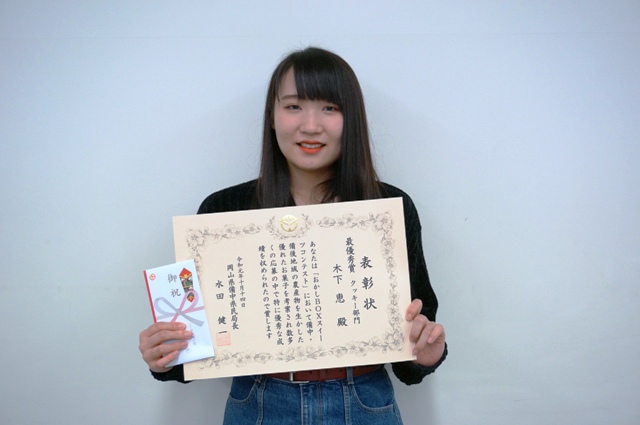 表彰状
最優秀賞 クッキー部門
木下 恵 殿
あなたは「おかしBOXスイー
ツコンテスト」において備中・
備後地域の農産物を生かした
優れたお菓子を考案され数多
くの応募の中で特に優秀な成
績を収められたので賞します
令和元年十月十四日
岡山県備中県民局長
水田 健一
御祝